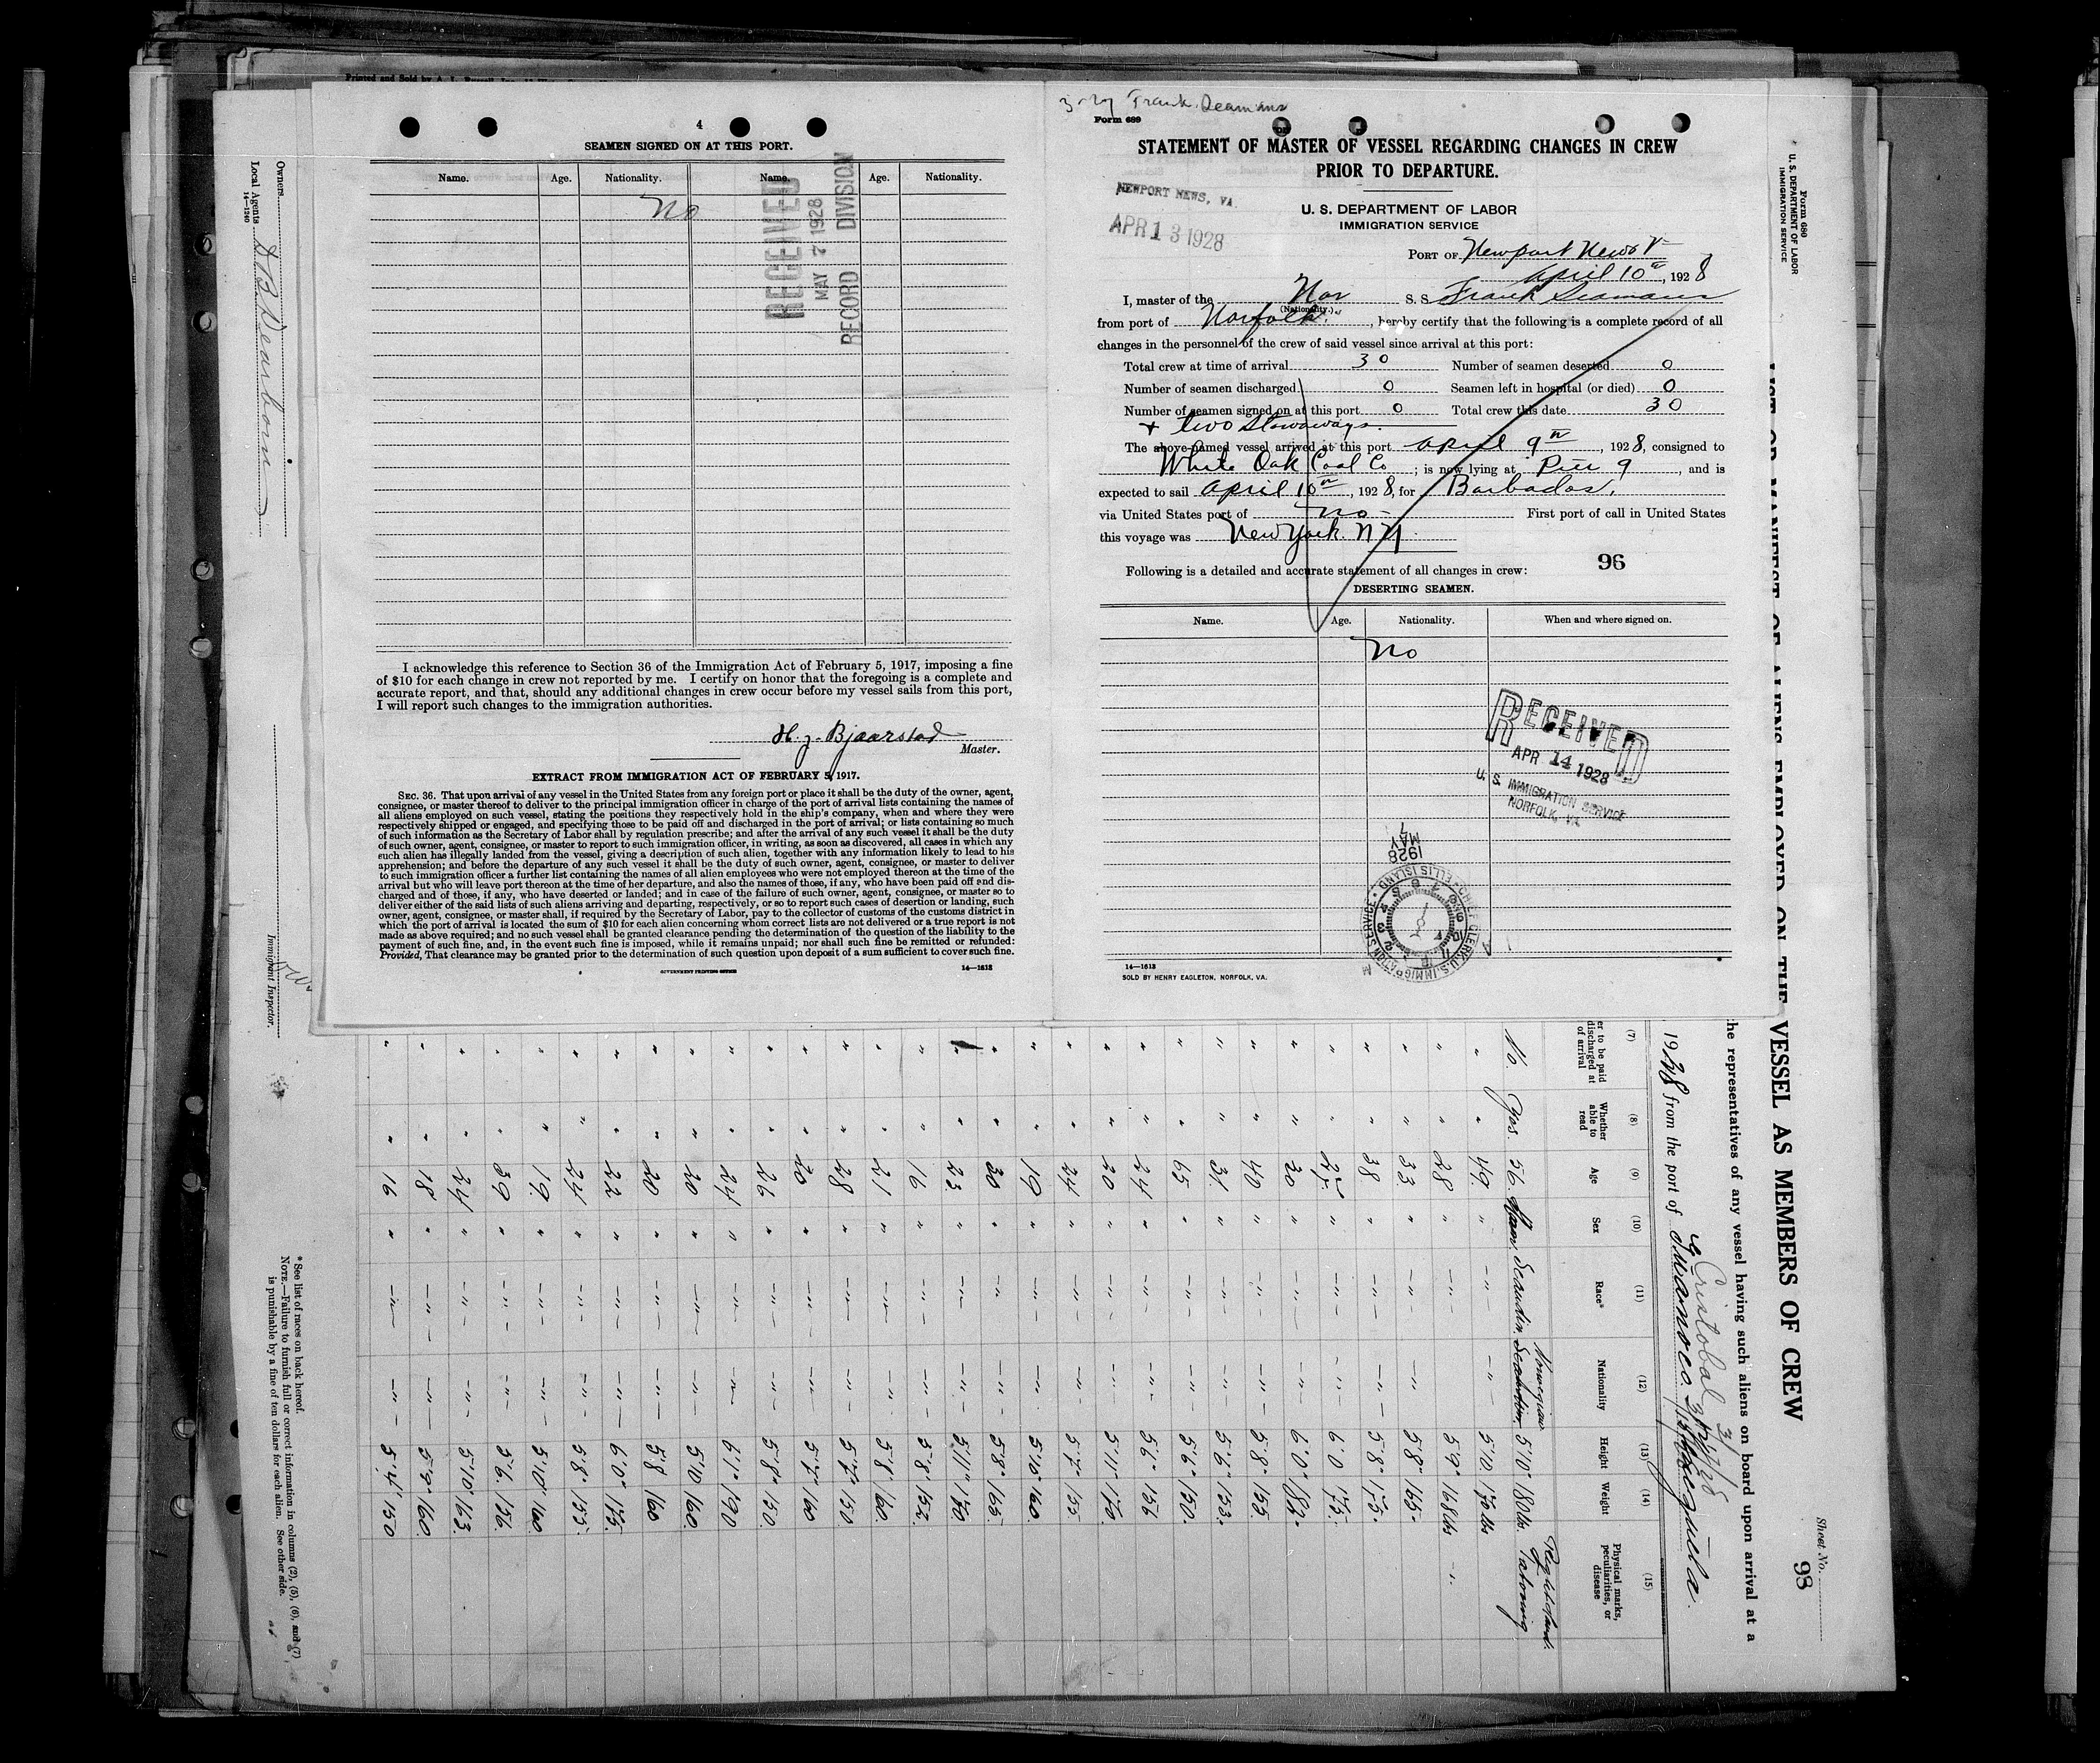 Printed and Sold by
4
SEAMEN SIGNED ON AT THIS PORT.
Name. Age. Nationality. Name. Age. Nationality.
No
RECEIVED
MAY 7 1928
RECORD DIVISION
I acknowledge this reference to Section 36 of the Immigration Act of February 5, 1917, imposing a fine
of $10 for each change in crew not reported by me. I certify on honor that the foregoing is a complete and
accurate report, and that, should any additional changes in crew occur before my vessel sails from this port,
I will report such changes to the immigration authorities.
H. J. Bjaarstad
Master.
EXTRACT FROM IMMIGRATION ACT OF FEBRUARY 5, 1917.
SEC. 36. That upon arrival of any vessel in the United States from any foreign port or place it shall be the duty of the owner, agent,
consignee, or master thereof to deliver to the principal immigration officer in charge of the port of arrival lists containing the names of
all aliens employed on such vessel, stating the positions they respectively hold in the ship's company, when and where they were
respectively shipped or engaged, and specifying those to be paid off and discharged in the port of arrival; or lists containing so much
of such information as the Secretary of Labor shall by regulation prescribe; and after the arrival of any such vessel it shall be the duty
of such owner, agent, consignee, or master to report to such immigration officer, in writing, as soon as discovered, all cases in which any
such alien has illegally landed from the vessel, giving a description of such alien, together with any information likely to lead to his
apprehension; and before the departure of any such vessel it shall be the duty of such owner, agent, consignee, or master to deliver
to such immigration officer a further list containing the names of all alien employees who were not employed thereon at the time of the
arrival but who will leave port thereon at the time of her departure, and also the names of those, if any, who have been paid off and dis-
charged and of those, if any, who have deserted or landed; and in case of the failure of such owner, agent, consignee, or master so to
deliver either of the said lists of such aliens arriving and departing, respectively, or so to report such cases of desertion or landing, such
owner, agent, consignee, or master shall, if required by the Secretary of Labor, pay to the collector of customs of the customs district in
which the port of arrival is located the sum of $10 for each alien concerning whom correct lists are not delivered or a true report is not
made as above required; and no such vessel shall be granted clearance pending the determination of the question of the liability to the
payment of such fine, and, in the event such fine is imposed, while it remains unpaid; nor shall such fine be remitted or refunded:
Provided, That clearance may be granted prior to the determination of such question upon deposit of a sum sufficient to cover such fine.
GOVERNMENT PRINTING OFFICE 14—1613
Frank Seamans
Form 689
STATEMENT OF MASTER OF VESSEL REGARDING CHANGES IN CREW
PRIOR TO DEPARTURE.
NEWPORT NEWS, VA.
APR 13 1928
U. S. DEPARTMENT OF LABOR
IMMIGRATION SERVICE
PORT OF Newport News V
April 10th, 1928
I, master of the Nor S. S. Frank Seamans
(Nationality.)
from port of Norfolk, hereby certify that the following is a complete record of all
changes in the personnel of the crew of said vessel since arrival at this port:
Total crew at time of arrival 30 Number of seamen deserted 0
Number of seamen discharged 0 Seamen left in hospital (or died) 0
Number of seamen signed on at this port 0 Total crew this date 30
+ two Stowaways.
The above-named vessel arrived at this port April 9th, 1928, consigned to
White Oak Coal Co; is now lying at Pier 9, and is
expected to sail April 10th, 1928, for Barbados.
via United States port of no First port of call in United States
this voyage was New York. NY.
96
Following is a detailed and accurate statement of all changes in crew:
DESERTING SEAMEN.
Name. Age. Nationality. When and where signed on.
No
RECEIVED
APR 14 1928
U. S. IMMIGRATION SERVICE
NORFOLK, VA.
1928
MAY
7
CHIEF CLERK U.S. IMMIGRATION SERVICE ELLIS ISLAND
14—1613
SOLD BY HENRY EAGLETON, NORFOLK, VA.
Owners
Local Agents
14—1240
Immigrant Inspector.
Form 680
U. S. DEPARTMENT OF LABOR
IMMIGRATION SERVICE
Sheet No.
93
VESSEL AS MEMBERS OF CREW
the representatives of any vessel having such aliens on board upon arrival at a
Cristobal
1928 from the port of
(7) (8) (9) (10) (11) (12) (13) (14) (15)
er to be paid discharged at of arrival
Whether able to read
Age
Sex
Race*
Nationality
Height
Weight
Physical marks, peculiarities, or disease
No. Yes. 56. Scandin. Norwegian 5'10" 180 lbs. Right hand. Tatooing
" " 49. " 5'10 170 lbs
" " 28 " 5'9" 168 lbs
" " 33 " 5'8" 165
" " 38 " 5'8"
" " 6'0
" " 30 " 6'0"
" " 40 " 5'8" 155
" " 31 " 5'6" 153
" " 65 " 5'6" 150
" " 24 " 5'6" 156
" " 20 " 5'11"
" " 24 " 5'7" 155
" " 19 " 5'10" 160
" " 30 " 5'8" 165
" " 23 " 5'11" 170
" " 16 " 5'8" 152
" " 21 " 5'8" 160
" " 28 " 5'7" 150
" " 20 " 5'7" 160
" " 26 " 5'8" 150
" " 24 " 6'1" 190
" " 20 " 5'10 160
" " 20 " 5'8 160
" " 22 " 6'0" 175
" " 24 " 5'8" 155
" " 19 " 5'10" 160
" " 39 " 5'6 156
" " 24 " 5'10" 163
" " 18 " 160
" " 16 " 5'4" 150
* See list of races on back hereof.
NOTE.—Failure to furnish full or correct information in columns (2), (5), (6), and (7)
is punishable by a fine of ten dollars for each alien. See other side.